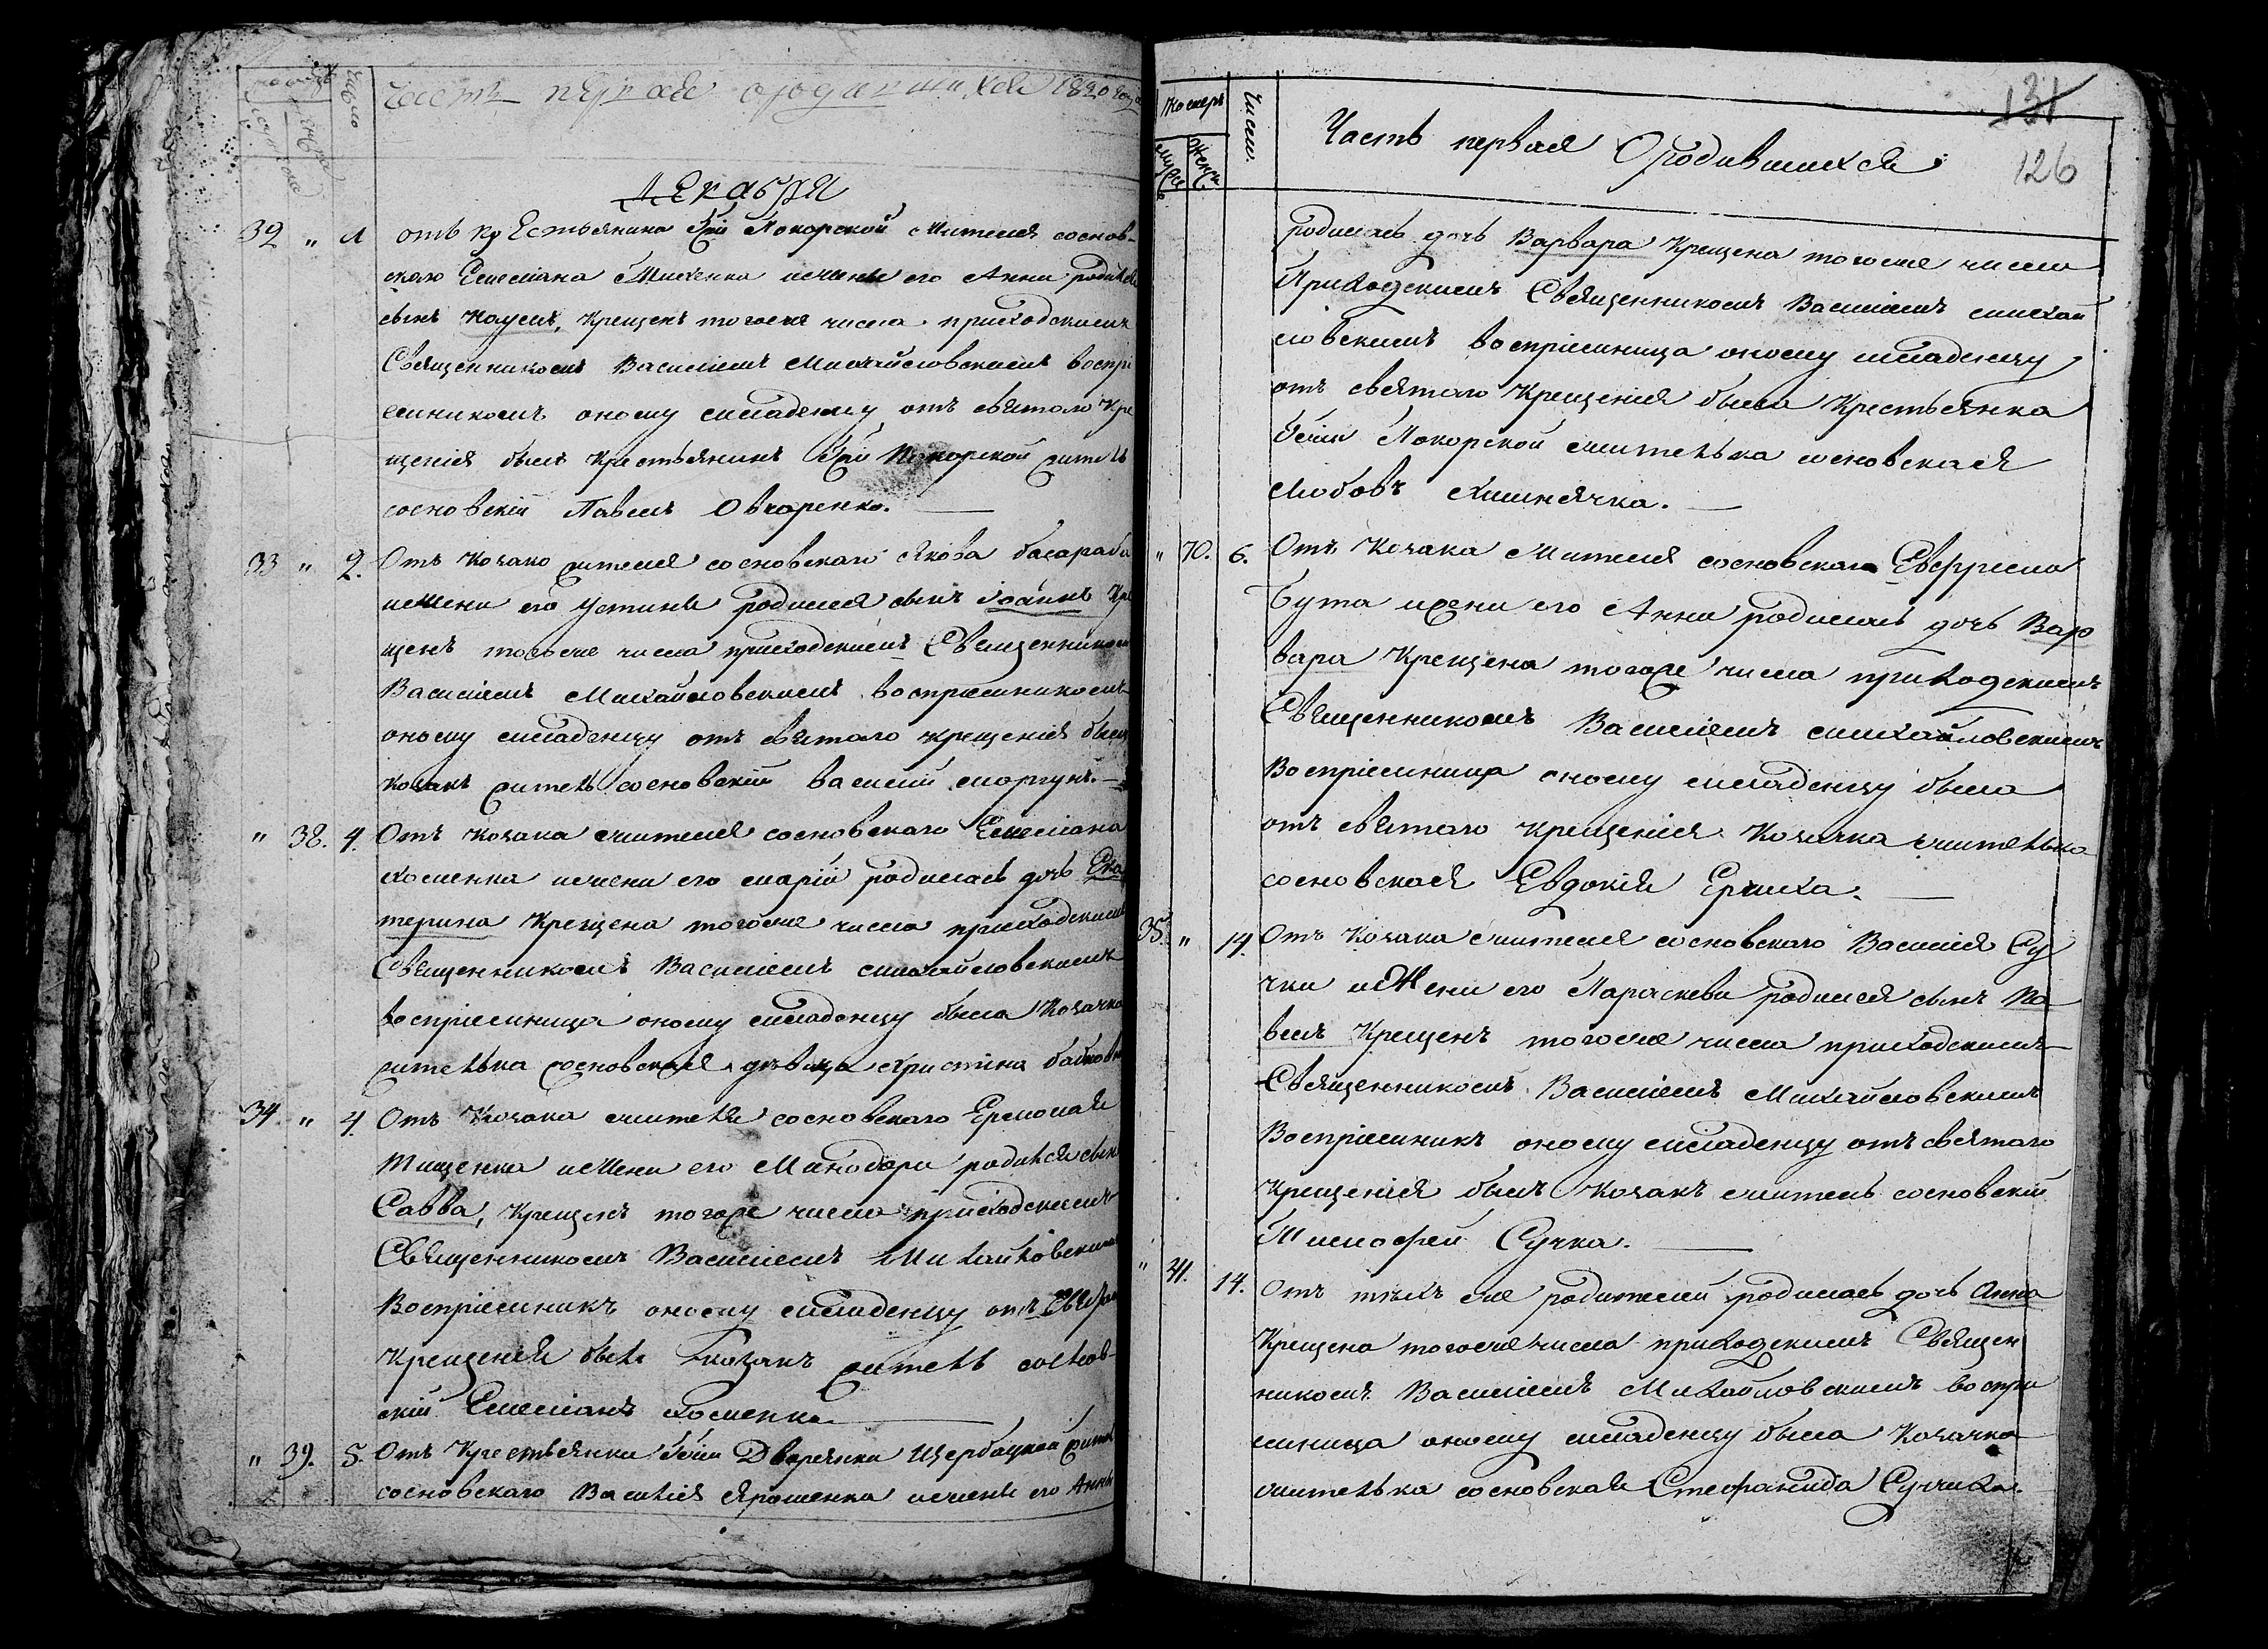 Часть первая о родившихся 1820 года
Число
Декабря
32 " 1 отъ крестьянина Гжи Покорской жителя соснов-
ского Емелiана Миленка и жены его Анны родился
сынъ Наумъ, крещенъ тогоже числа приходскимъ
Священникомъ Василiемъ Михайловскимъ воспрi
емникомъ оному младенцу отъ святого кре
щенiя былъ крестьянинъ Гжи Покорской житель
сосновскiй Павелъ Овчаренко.
33 " 2. Отъ козака жителя сосновскаго Якова басараба
и жены его Устины родился сынъ Iоаннъ кре
щенъ тогоже числа приходскимъ Священникомъ
Василiемъ Михайловскимъ воспрiемникомъ
оному младенцу отъ святаго крещенiя былъ
козакъ житель сосновскiй василiй моргунъ.
" 38. 4. Отъ козака жителя сосновскаго Емелiана
хоменка и жены его марiи родилась дочь Ека
терина крещена тогоже числа приходскимъ
Священникомъ Василiемъ михайловскимъ
воспрiемница оному младенцу была козачка
жителька сосновская девица христина
34 " 4. Отъ козака жителя сосновскаго Ермолая
Тищенка и жены его Минодоры родился сынъ
Савва, крещенъ тогоже числа приходскимъ
Священникомъ Василiемъ Михайловскимъ
Воспрiемникъ оному младенцу отъ Святаго
крещенiя былъ козакъ житель соснов-
скiй Емелiанъ хоменко
" 39. 5. Отъ крестьянина Гжи Дворянки Щербацкой жителя
сосновскаго Василiя Ярошенка и жены его Анны
131
126
Номеръ
Число.
мужеск
женск
Часть первая О родившихся
родилась дочь Варвара крещена тогоже числа
Приходскимъ Священникомъ Василiемъ михай
ловскимъ воспрiемница оному младенцу
отъ святаго крещенiя была крестьянка
Гжи Покорской жителька сосновская
Любовь
" 40. 6. Отъ козака жителя сосновскаго Евфрема
Бута и жены его Анны родилась дочь Вар
вара крещена тогоже числа приходскимъ
Священникомъ Василiемъ михайловскимъ
Воспрiемница оному младенцу была
отъ святаго крещенiя козачка жителька
сосновская Евдокiя Ерчиха.
35. " 14. Отъ козака жителя сосновскаго Василiя Су
чки и жены его Параскевы родился сынъ Па
велъ крещенъ тогоже числа приходскимъ
Священникомъ Василiемъ Михайловскимъ
Воспрiемникъ оному младенцу отъ святаго
крещенiя былъ козакъ житель сосновскiй
Тимофей Сучка.
" 41. 14. Отъ техъ же родителей родилась дочь Анна
крещена тогоже числа приходскимъ Священ
никомъ Василiемъ Михайловскимъ воспрi
емница оному младенцу была козачка
жителька сосновская Стефанида Сучиха.